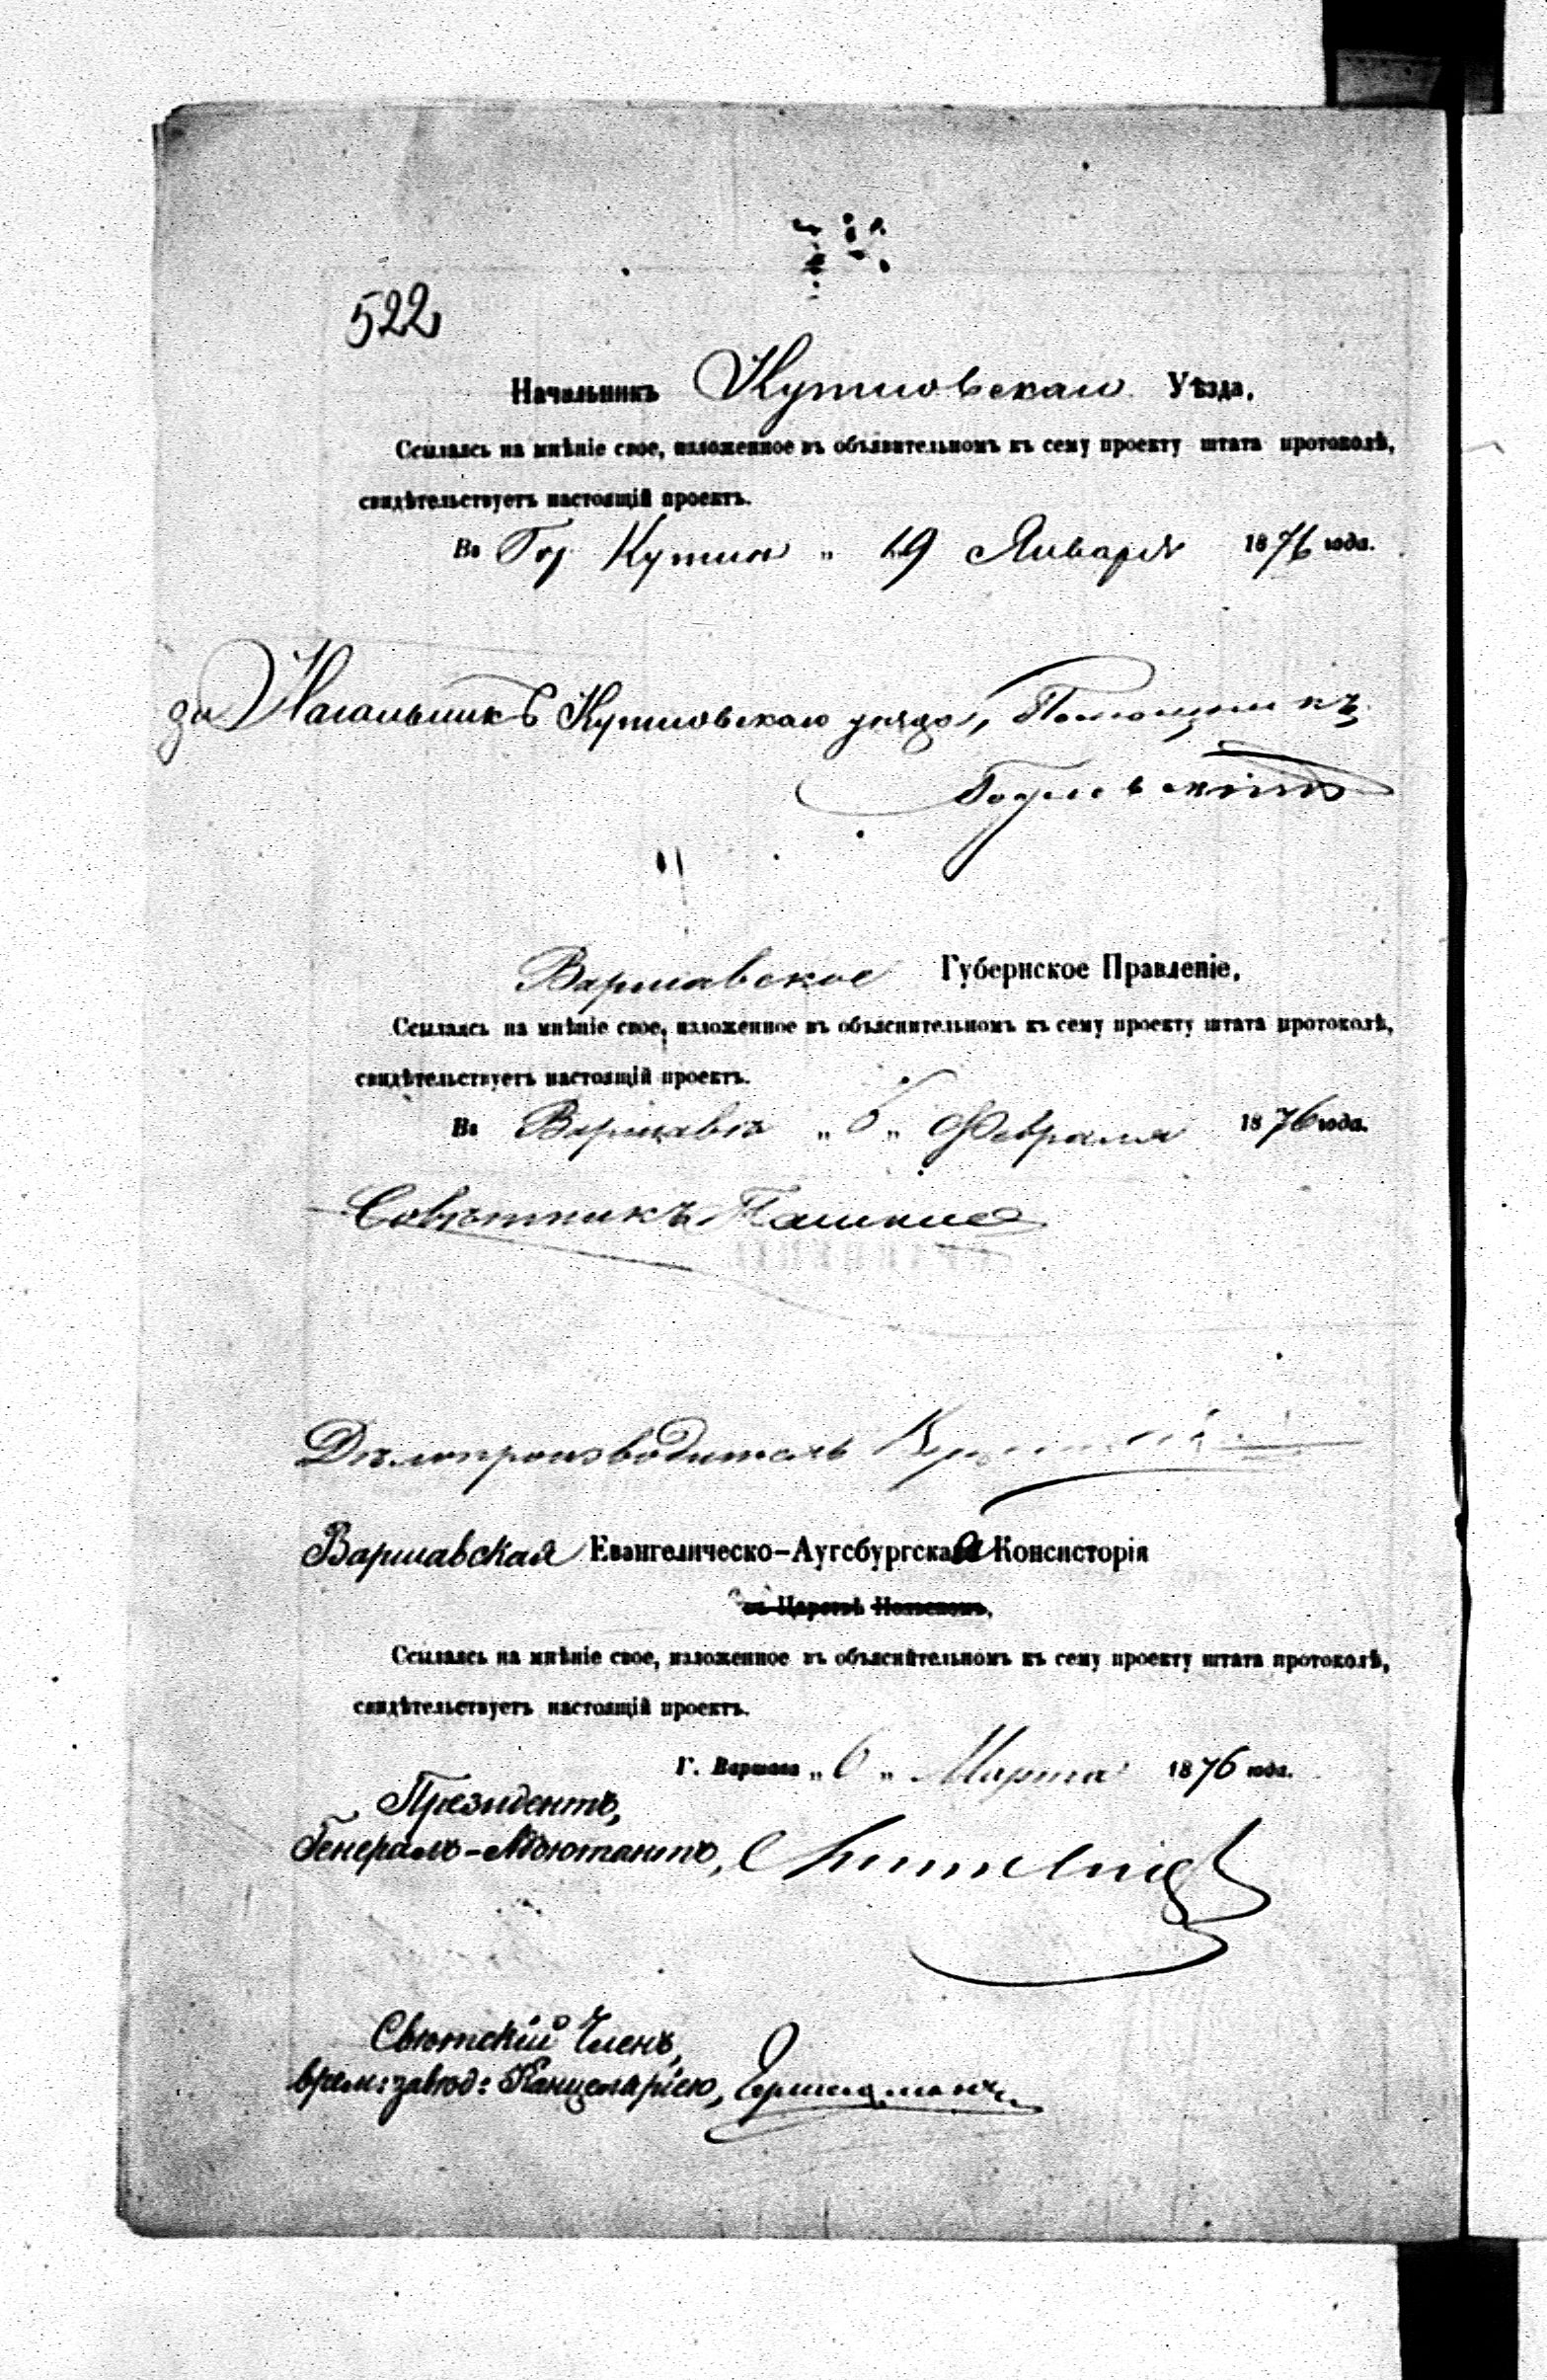 522
Начальникъ Кутновскаго Уѣзда,
Ссылаясь на мнѣніе свое, изложенное въ объяснительномъ къ сему проекту штата протоколѣ,
свидѣтельствуетъ настоящій проектъ.
Въ Гор Кутнѣ „ 19 Января 1876 года.
за Начальника Кутновскаго уѣзда, Помощникъ
Варшавское Губернское Правленіе,
Ссылаясь на мнѣніе свое, изложенное въ объяснительномъ къ сему проекту штата протоколѣ,
свидѣтельствуетъ настоящій проектъ.
Въ Варшавѣ „ 6 „ Февраля 1876 года.
Совѣтникъ
Дѣлопроизводитель
Варшавская Евангелическо-Аугсбургская Консисторія
въ Царствѣ Польскомъ,
Ссылаясь на мнѣніе свое, изложенное въ объяснительномъ къ сему проекту штата протоколѣ,
свидѣтельствуетъ настоящій проектъ.
Г. Варшава „ 6 „ Марта 1876 года.
Президентъ,
Генералъ-Адъютантъ,
Свѣтскій Членъ,
врем: завѣд: Канцеляріею,